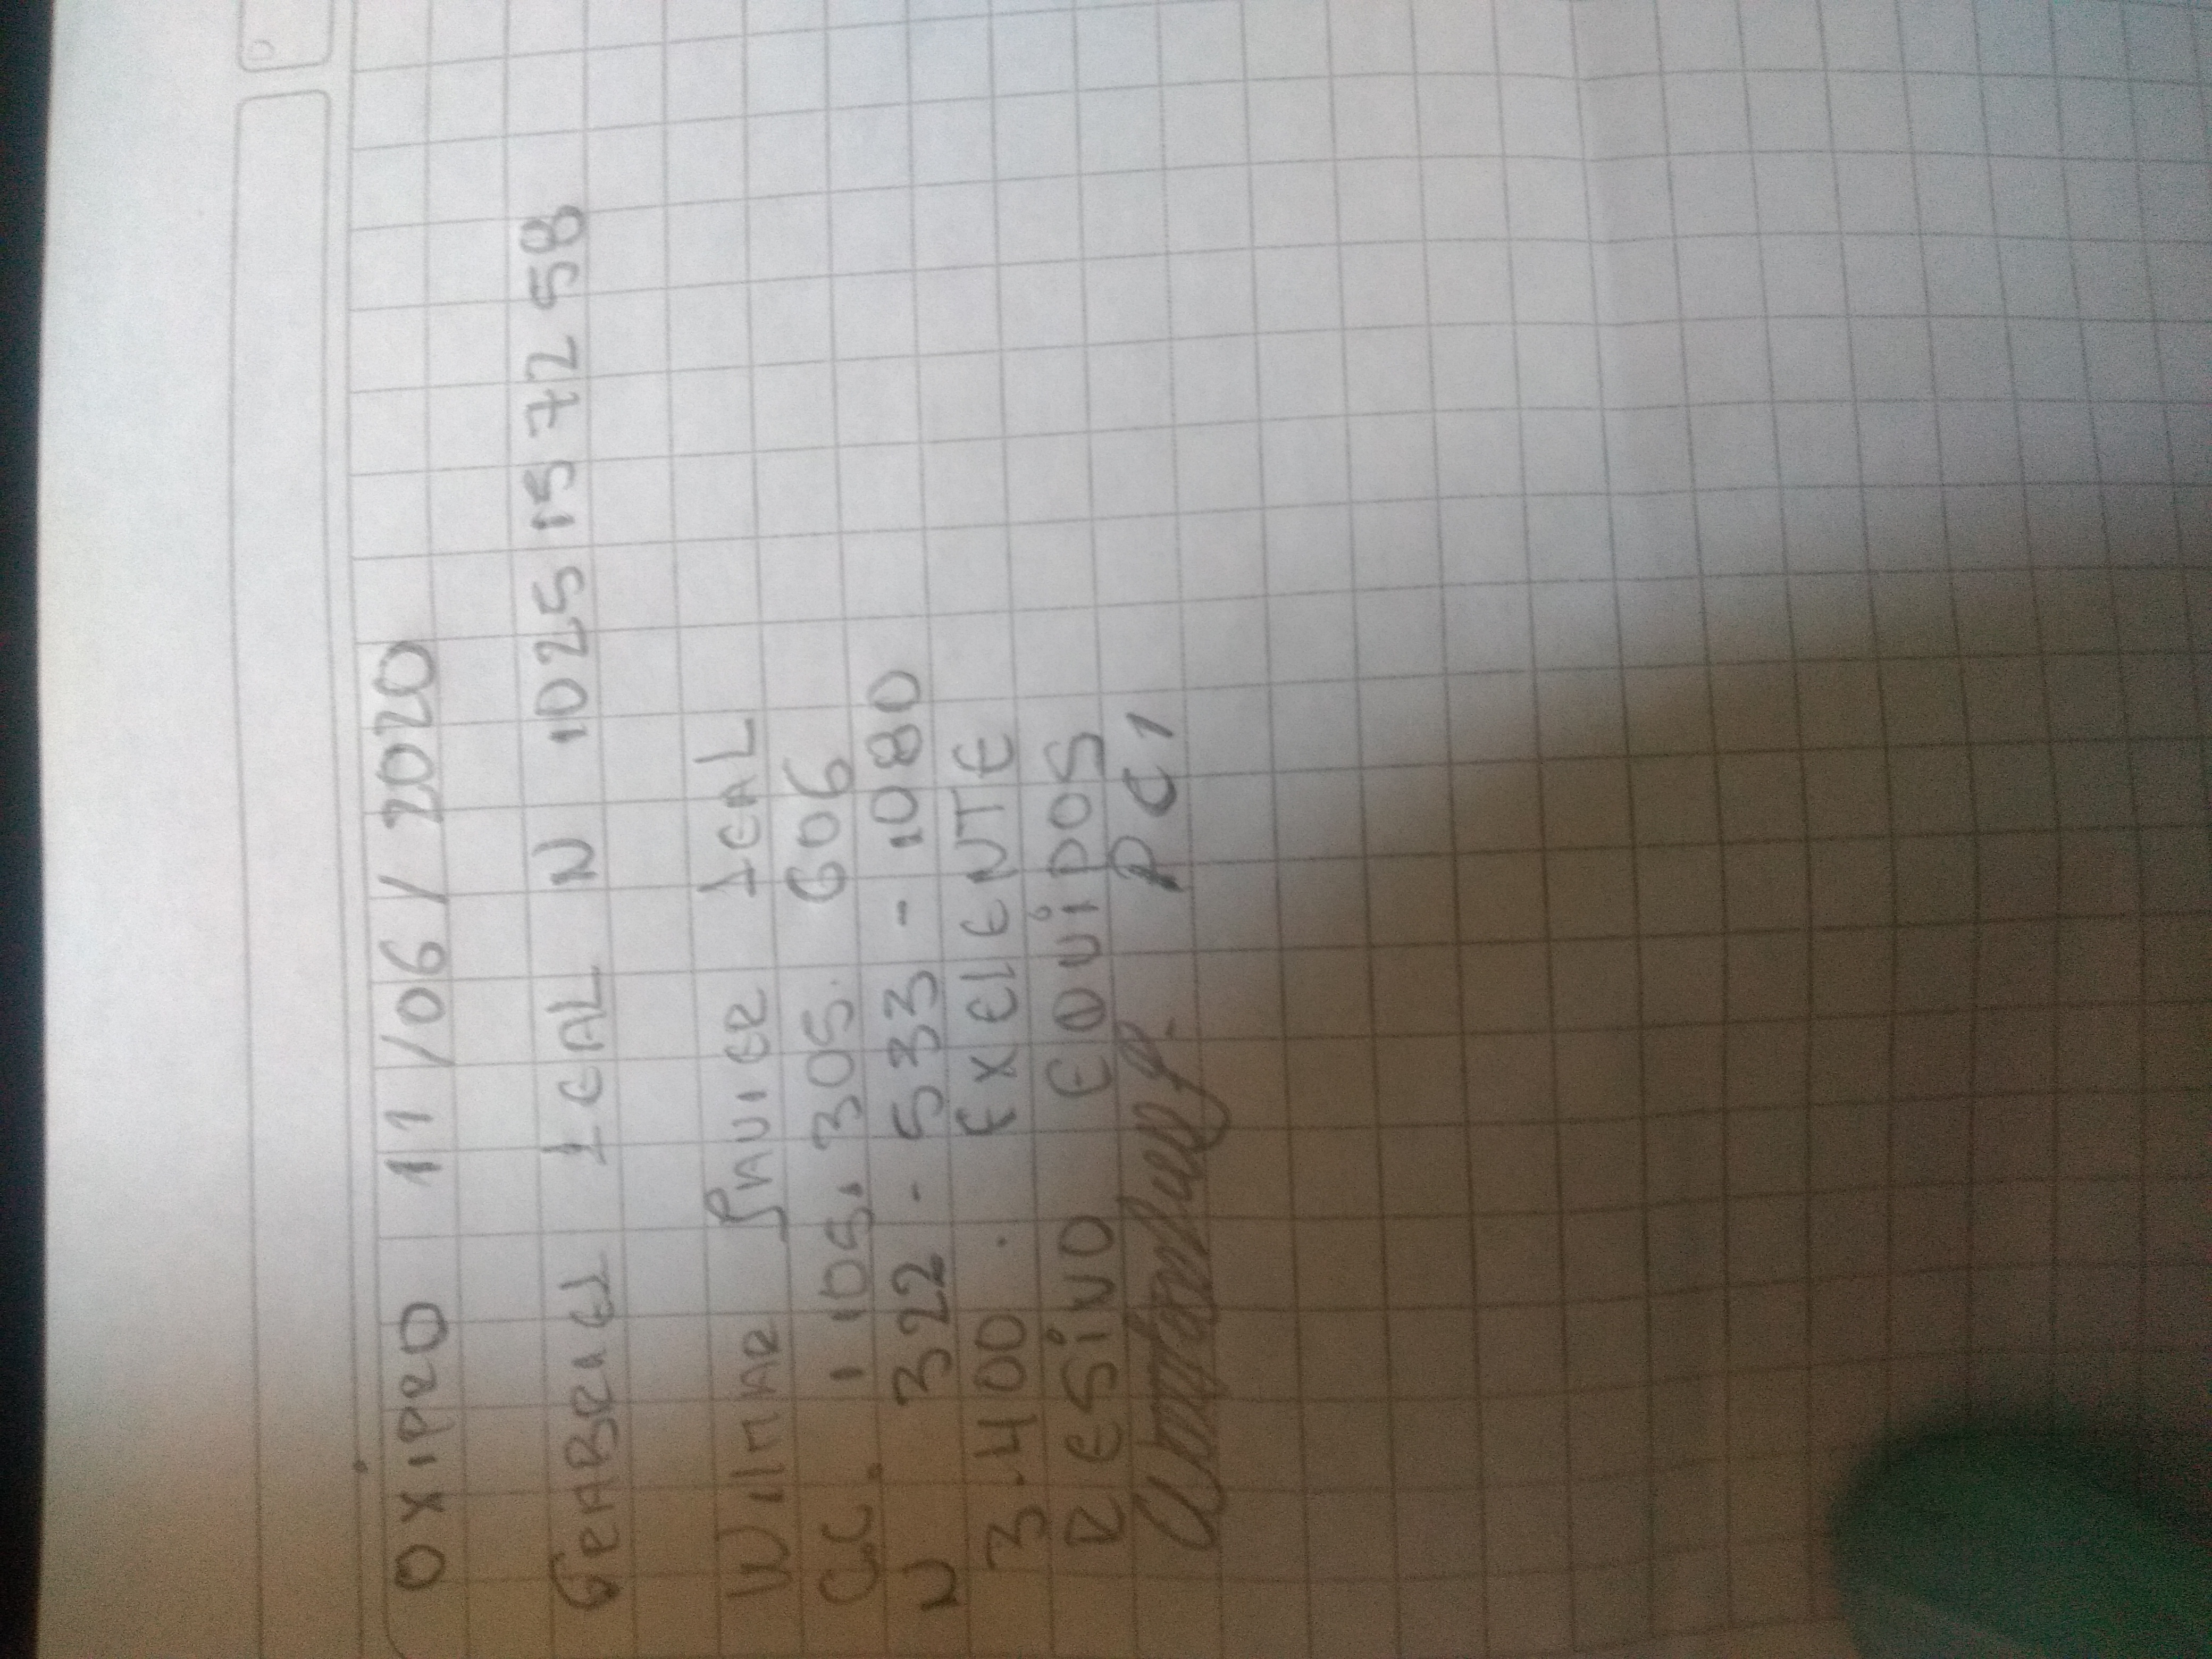 OXIPRO 11/06/2020
GRABRIEL LEAL N 1025 15 72 58
WILMAR JAVIER LEAL
CC. 1 105. 305. 606
N 322 - 533 - 1080
3.400. EXELENTE
RESIVO EQUIPOS
PC1